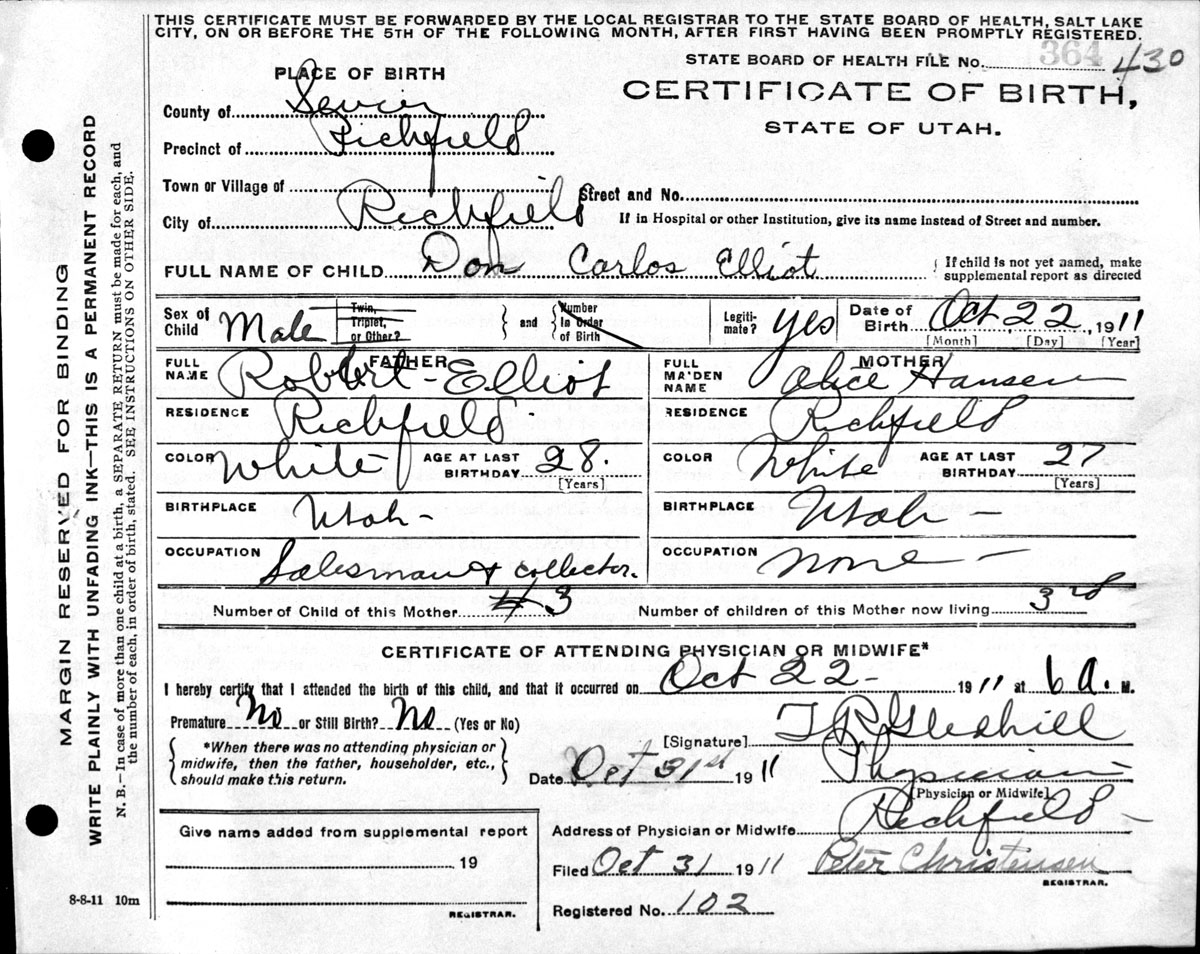 THIS CERTIFICATE MUST BE FORWARDED BY THE LOCAL REGISTRAR TO THE STATE BOARD OF HEALTH, SALT LAKE
CITY, ON OR BEFORE THE 5TH OF THE FOLLOWING MONTH, AFTER FIRST HAVING BEEN PROMPTLY REGISTERED.
STATE BOARD OF HEALTH FILE No. 364 430
PLACE OF BIRTH
CERTIFICATE OF BIRTH,
STATE OF UTAH.
County of Sevier
Precinct of Richfield
Town or Village of
Street and No.
City of Richfield
If in Hospital or other Institution, give its name instead of Street and number.
FULL NAME OF CHILD Don Carlos Elliot
{ If child is not yet named, make
supplemental report as directed
Sex of Child Male
Twin, Triplet, or Other?
} and {
Number In Order of Birth
Legiti-mate? yes
Date of Birth Oct 22, 1911
[Month] [Day] [Year]
FATHER
FULL NAME Robert Elliot
RESIDENCE Richfield
COLOR White AGE AT LAST BIRTHDAY 28.
[Years]
BIRTHPLACE Utah -
OCCUPATION Salesman & collector.
MOTHER
FULL MAIDEN NAME Alice Hansen
RESIDENCE Richfield
COLOR White AGE AT LAST BIRTHDAY 27
[Years]
BIRTHPLACE Utah -
OCCUPATION None -
Number of Child of this Mother 3 Number of children of this Mother now living 3rd
CERTIFICATE OF ATTENDING PHYSICIAN OR MIDWIFE*
I hereby certify that I attended the birth of this child, and that it occurred on Oct 22 - 1911 at 6 a. M.
Premature No or Still Birth? No (Yes or No)
{ *When there was no attending physician or
midwife, then the father, householder, etc.,
should make this return. }
[Signature] T R Gledhill
Date Oct 31st 1911 Physician
[Physician or Midwife]
Give name added from supplemental report
19
REGISTRAR.
Address of Physician or Midwife Richfield -
Filed Oct 31 1911 Peter Christensen
REGISTRAR.
Registered No. 102
MARGIN RESERVED FOR BINDING
WRITE PLAINLY WITH UNFADING INK—THIS IS A PERMANENT RECORD
N. B.—In case of more than one child at a birth, a SEPARATE RETURN must be made for each, and
the number of each, in order of birth, stated. SEE INSTRUCTIONS ON OTHER SIDE.
8-8-11 10m